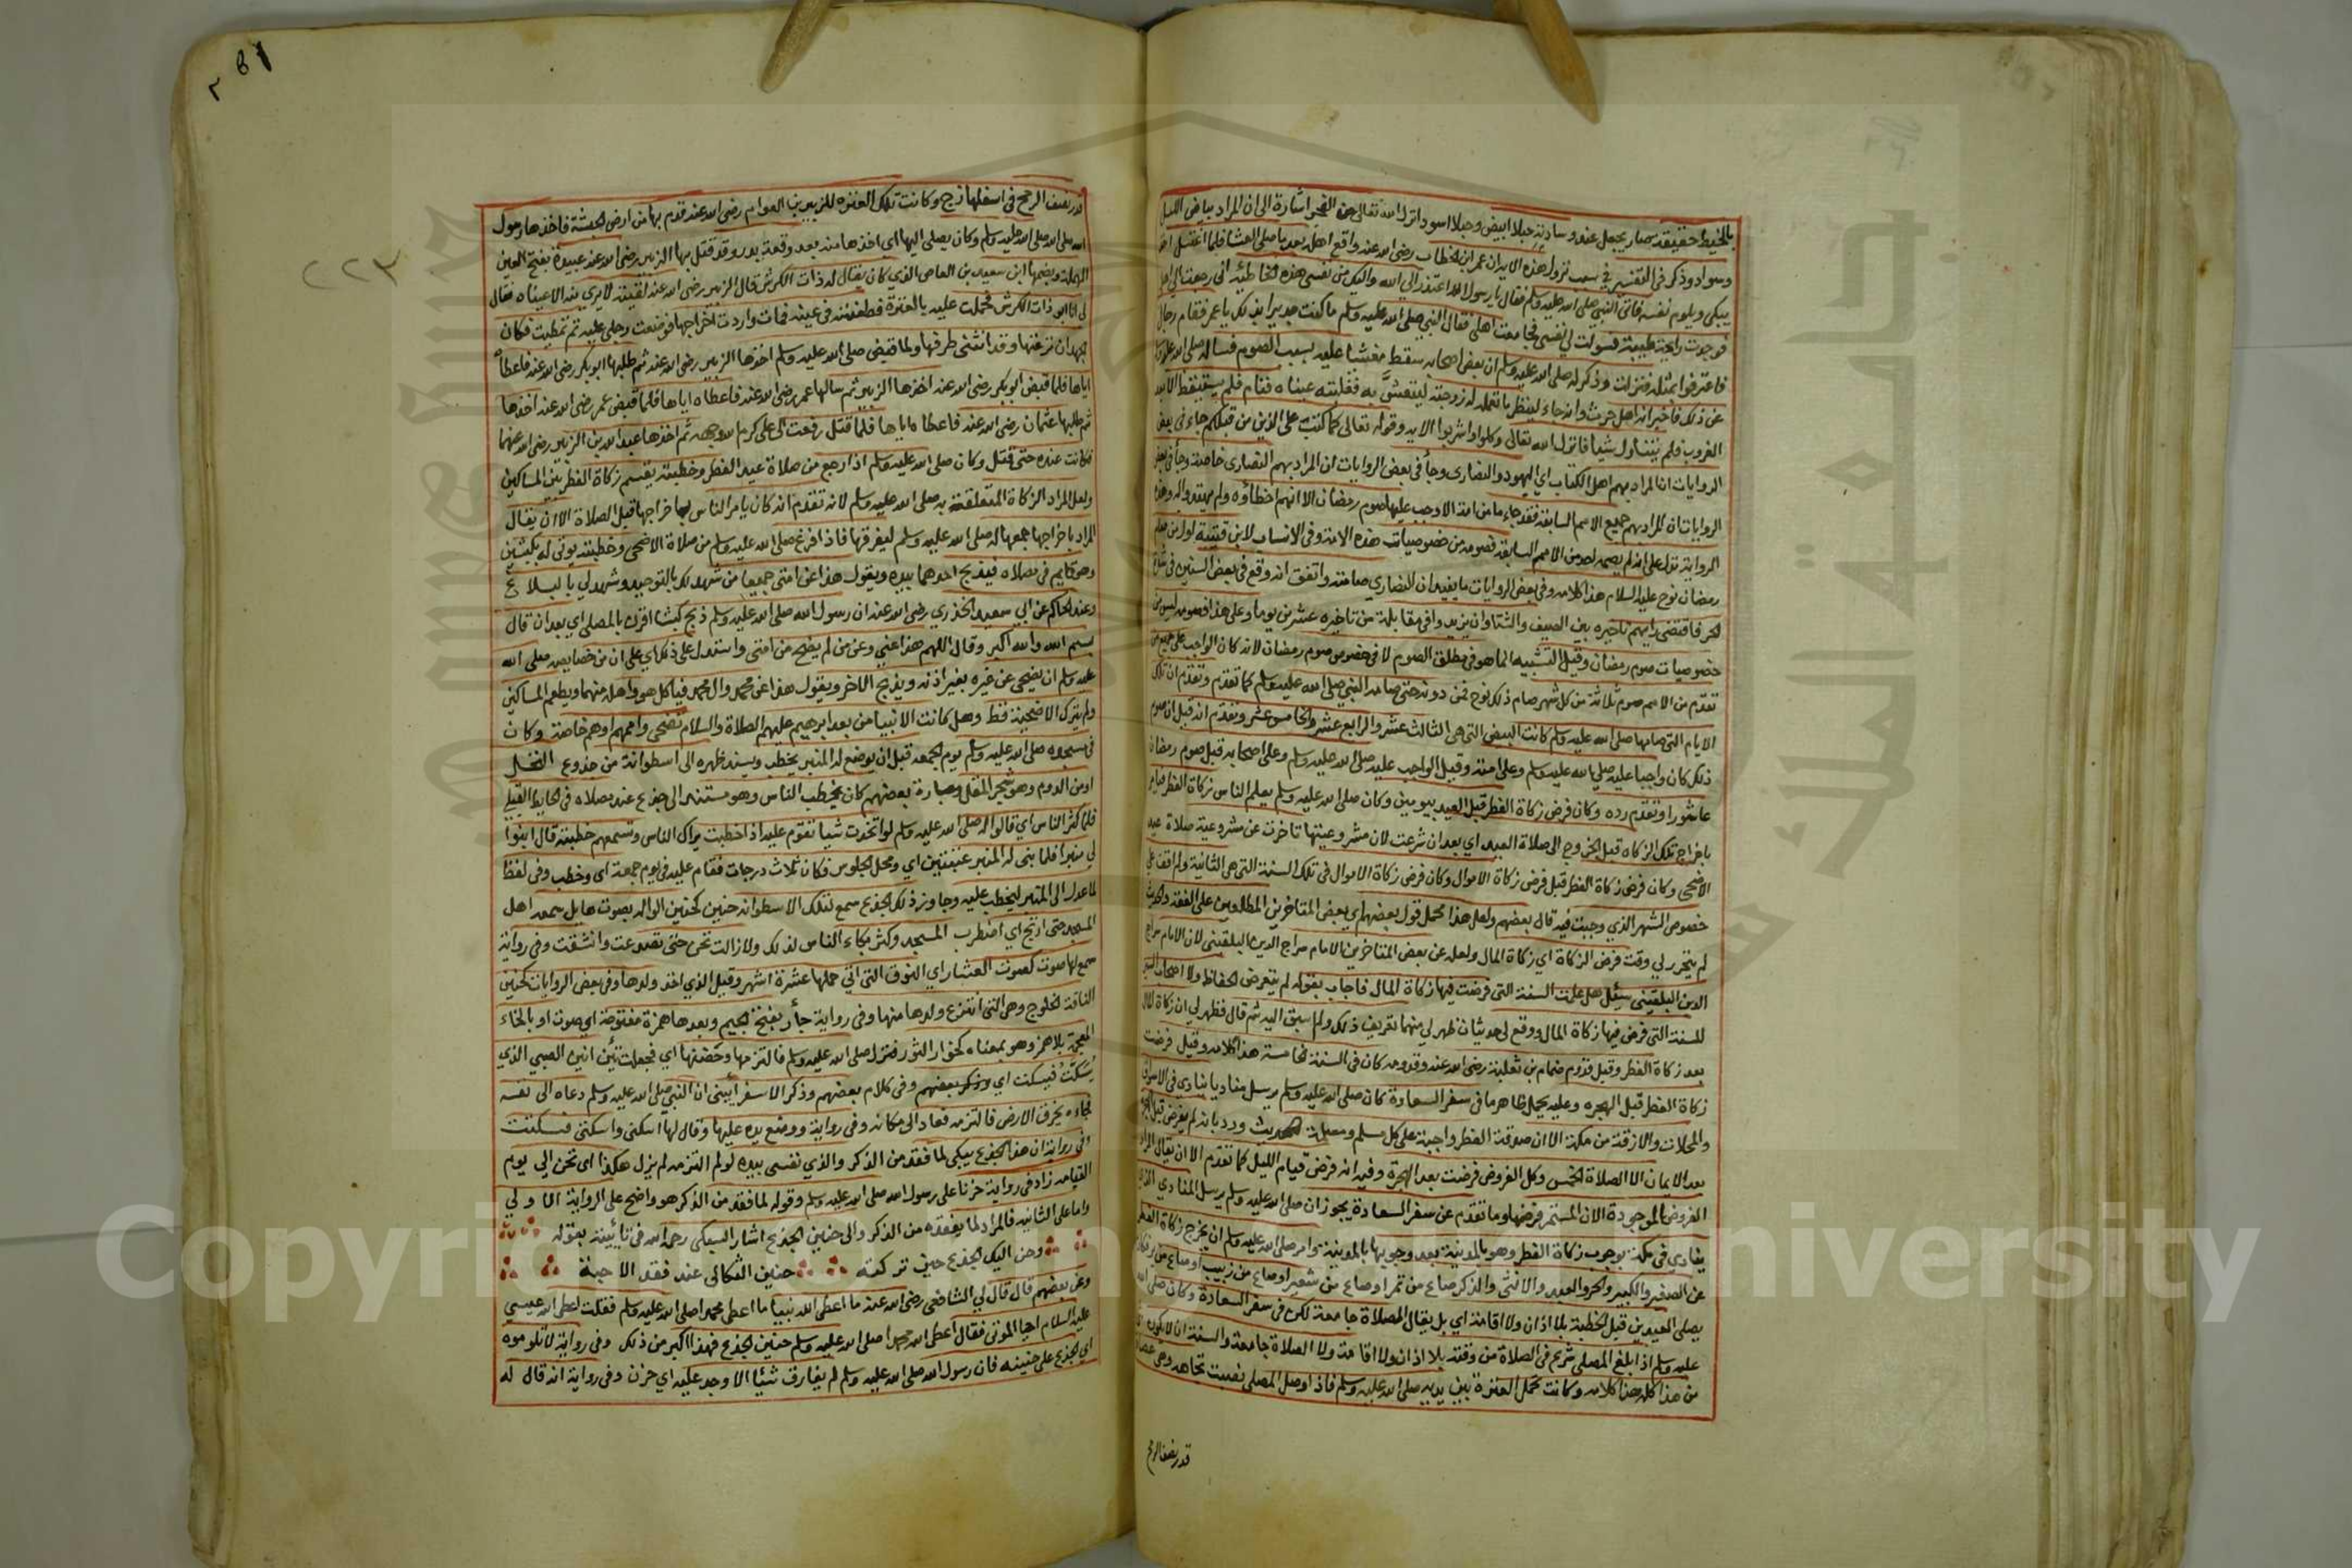 بالخيط حقيقة سمار يجعل عند وسادته حبلا ابيض وحبلا اسود انزل الله تعالى من الفجر اشارة الى ان المراد بياض الليل
وسواد وذكر في التفسير في سبب نزول هذه الاية ان عمر ابن الخطاب رضي الله عنه واقع اهله بعد ما صلى العشا فلما اغتسل اخذ
يبكي ويلوم نفسه فاتى النبي صلى الله عليه وسلم فقال يا رسول الله اعتذر الى الله واليك من نفسي هذه الخاطئة اني رجعت الى اهلي
فوجدت رايحة طيبة فسولت لي نفسي فجامعت اهلي فقال النبي صلى الله عليه وسلم ما كنت جديرا بذلك يا عمر فقام رجال
فاعترفوا بمثله فنزلت وذكر له صلى الله عليه وسلم ان بعض اصحابه سقط مغشيا عليه بسبب الصوم فساله صلى الله عليه وسلم
عن ذلك فاخبر انه اهل حرث وانه جاء لينظر ما تعمله له زوجته ليتعشى به فغلبته عيناه فنام فلم يستيقظ الا بعد
الغروب فلم يتناول شيا فانزل الله تعالى وكلوا واشربوا الاية وقوله تعالى كما كتب على الذين من قبلكم جاء في بعض
الروايات ان المراد بهم اهل الكتاب اي اليهود والنصارى وجا في بعض الروايات ان المراد بهم النصارى خاصة وجا في بعض
الروايات ان المراد بهم جميع الامم السابقة فقد جاء ما من امة الا وجب عليها صوم رمضان الا انهم اخطاؤه ولم يهتدوا له وهذه
الرواية تدل على انه لم يصمه احد من الامم السابقة فصومه من خصوصيات هذه الامة وفي الانساب لابن قتيبة اول من صام
رمضان نوح عليه السلام هذا كلامه وفي بعض الروايات ما يفيد ان النصاري صامته واتفق انه وقع في بعض السنين في شدة
الحر فاقتضى رايهم تاخيره بين الصيف والشتا وان يزيدوا في مقابلة من تاخيره عشرين يوما وعلى هذا فصومه ليس من
خصوصيات صوم رمضان وقيل التشبيه انما هو في مطلق الصوم لا في خصوص صوم رمضان لانه كان الواجب على جميع من
تقدم من الامم صوم ثلاثة من كل شهر صام ذلك نوح فمن دونه حتى صامه النبي صلى الله عليه وسلم كما تقدم وتقدم ان تلك
الايام التي صامها صلى الله عليه وسلم كانت البيض التي هي الثالث عشر والرابع عشر والخامس عشر وتقدم انه قيل ان صوم
ذلك كان واجبا عليه صلى الله عليه وسلم وعلى امته وقيل الواجب عليه صلى الله عليه وسلم وعلى اصحابه قبل صوم رمضان
عاشورا وتقدم رده وكان فرض زكاة الفطر قبل العيد بيومين وكان صلى الله عليه وسلم يعلم الناس زكاة الفطر فيامر
باخراج تلك الزكاه قبل الخروج الى صلاة العيد اي بعد ان شرعت لان مشروعيتها تاخرت عن مشروعية صلاة عيد
الاضحى وكان فرض زكاة الفطر قبل فرض زكاة الاموال وكان فرض زكاة الاموال في تلك السنة التي هي الثانية ولم اقف على
خصوص الشهر الذي وجبت فيه قال بعضهم ولعل هذا محمل قول بعضهم اي بعض المتاخرين المطلعين على الفقه والحديث
لم يتحرر لي وقت فرض الزكاة اي زكاة المال ولعله عن بعض المتاخرين الامام سراج الدين البلقيني لان الامام سراج
الدين البلقيني سئل هل علمت السنة التي فرضت فيها زكاة المال فاجاب بقوله لم يتعرض الحفاظ ولا اصحاب السير
للسنة التي فرض فيها زكاة المال ووقع لي حديثان ظهر لي منهما تعريف ذلك ولم اسبق اليه ثم قال فظهر لي ان زكاة المال
بعد زكاة الفطر وقبل قدوم ضمام بن ثعلبة رضي الله عنه وقدومه كان في السنة خامسة هذا كلامه وقيل فرضت
زكاة الفطر قبل الهجره وعليه يحمل ظاهر ما في سفر السعادة كان صلى الله عليه وسلم يرسل مناديا ينادي في الاسواق
والمحلات والازقة من مكة الا ان صدقة الفطر واجبة على كل مسلم ومسلمة الحديث ورد بانه لم يفرض قبل الهجرة
بعد الايمان الا الصلاة الخمس وكل الفروض فرضت بعد الهجرة وفيه انه فرض قيام الليل كما تقدم الا ان يقال المراد
الفروض الموجودة الان المستمر فرضها وما تقدم عن سفر السعادة يجوز ان صلى الله عليه وسلم يرسل المنادي الذي
ينادي في مكة بوجوب زكاة الفطر وهو بالمدينة بعد وجوبها بالمدينة وامر صلى الله عليه وسلم ان يخرج زكاة الفطر
عن الصغير والكبير والحر والعبد والانثى والذكر صاع من تمر او صاع من شعير او صاع من زبيب او صاع من بر وكان
يصلي العيدين قبل الخطبة بلا اذان ولا اقامة اي بل يقال الصلاة جامعة لكن في سفر السعادة وكان صلى الله
عليه وسلم اذا بلغ المصلى شرع في الصلاة من وقته بلا اذان ولا اقامة ولا الصلاة جامعة والسنة ان لا يكون
من هذا كله هذا كلامه وكانت تحمل العنزة بين يديه صلى الله عليه وسلم فاذا وصل المصلى نصبت تجاهه وهي عصا
قدر نصف الرمح
٢٢٣
قدر نصف الرمح في اسفلها زج وكانت تلك العنزه للزبير بن العوام رضي الله عنه قدم بها من ارض الحبشة فاخذها رسول
الله صلى الله عليه وسلم وكان يصلي اليها اي اخذها منه بعد وقعة بدر وقد قتل بها الزبير رضي الله عنه عبيدة بفتح العين
المهملة وبضمها ابن سعيد بن العاص الذي كان يقال له ذات الكرش قال الزبير رضي الله عنه لقيته لا يرى منه الا عيناه فقال
لي انا ابو ذات الكرش فحملت عليه بالعنزة فطعنته في عينه فمات واردت اخراجها فوضعت رجلي عليه ثم تمطيت فكان
الجهد ان نزعتها وقد انثنى طرفها ولما قبض صلى الله عليه وسلم اخذها الزبير رضي الله عنه ثم طلبها ابو بكر رضي الله عنه فاعطاه
اياها فلما قبض ابو بكر رضي الله عنه اخذها الزبير ثم سالها عمر رضي الله عنه فاعطاه اياها فلما قبض عمر رضي الله عنه اخذها
ثم طلبها عثمان رضي الله عنه فاعطاه اياها فلما قتل رفعت الى علي كرم الله وجهه ثم اخذها عبد الله بن الزبير رضي الله عنهما
فكانت عنده حتى قتل وكان صلى الله عليه وسلم اذا رجع من صلاة عيد الفطر وخطبته يقسم زكاة الفطر بين المساكين
ولعل المراد الزكاة المتعلقة به صلى الله عليه وسلم لانه تقدم انه كان يامر الناس باخراجها قبل الصلاة الا ان يقال
المراد باخراجها جمعها له صلى الله عليه وسلم ليفرقها فاذا فرغ صلى الله عليه وسلم من صلاة الاضحى وخطبته يوتى له بكبشين
وهو قايم في مصلاه فيذبح احدهما بيده ويقول هذا عن امتي جميعا من شهد لك بالتوحيد وشهد لي بالبلاغ
وعند الحاكم عن ابي سعيد الخدري رضي الله عنه ان رسول الله صلى الله عليه وسلم ذبح كبشا اقرن بالمصلى اي بعد ان قال
بسم الله والله اكبر وقال اللهم هذا عني وعن من لم يضح من امتي واستدل على ذلك اي على ان من خصايصه صلى الله
عليه وسلم ان يضحي عن غيره بغير اذنه ويذبح الاخر ويقول هذا عن محمد وال محمد فياكل هو واهله منهما ويطعم المساكين
ولم يترك الاضحية قط وهل كانت الانبيا من بعد ابرهيم عليهم الصلاة والسلام تضحي واممهم او هم خاصة وكان
في مسجده صلى الله عليه وسلم يوم الجمعه قبل ان يوضع له المنبر يخطب ويسند ظهره الى اسطوانة من جذوع النخل
او من الدوم وهو شجر المقل وعبارة بعضهم كان يخطب الناس وهو مستند الى جذع عند مصلاه في الحايط القبلي
فلما كثر الناس اي قالوا له صلى الله عليه وسلم لو اتخذت شيا تقوم عليه اذا خطبت يراك الناس وتسمعهم خطبته قال ابنوا
لي منبرا فلما بنى له المنبر عتبتين اي ومحل الجلوس فكان ثلاث درجات فقام عليه في يوم جمعة اي وخطب وفي لفظ
لما عدل الى المنبر ليخطب عليه وجاوز ذلك الجذع سمع لتلك الاسطوانه حنين كحنين الواله بصوت هايل سمعه اهل
المسجد حتى ارتج اي اضطرب المسجد وكثر بكاء الناس لذلك ولا زالت تحن حتى تصدعت وانشقت وفي رواية
سمع لها صوت كصوت العشار اي النوق التي اتى حملها عشرة اشهر وقيل الذي اخذ ولدها وفي بعض الروايات كحنين
الناقة الخلوج وهي التي انتزع ولدها منها وفي رواية جأر بفتح الجيم وبعدها همزة مفتوحة اي صوت او بالخاء
المعجمة بلا همز وهو بمعناه كخوار الثور فنزل صلى الله عليه وسلم فالتزمها وحضنها اي فجعلت تئن انين الصبي الذي
يسكت فيسكت اي وذكر بعضهم وفي كلام بعضهم وذكر الاسفرايني ان النبي صلى الله عليه وسلم دعاه الى نفسه
فجاءه يخرق الارض فالتزمه فعاد الى مكانه وفي رواية ووضع يده عليها وقال لها اسكني واسكتي فسكنت
وفي رواية ان هذا الجذع يبكي لما فقد من الذكر والذي نفسي بيده لو لم التزمه لم يزل هكذا اي تحن الى يوم
القيامه زاد في رواية حزنا على رسول الله صلى الله عليه وسلم وقوله لما فقد من الذكر هو واضح على الرواية الاولي
واما على الثانية فالمراد لما يفقده من الذكر والى حنين الجذع اشار السبكي رحمه الله في تائيته بقوله
وحن اليك الجذع حين تركته حنين الثكالى عند فقد الاحبة
وعن بعضهم قال قال لي الشافعي رضي الله عنه ما اعطى الله نبيا ما اعطى محمدا صلى الله عليه وسلم فقلت اعطى الله عيسى
عليه السلام احيا الموتى فقال اعطى الله محمدا صلى الله عليه وسلم حنين الجذع فهذا اكبر من ذلك وفي رواية لا تلوموه
اي الجذع على حنينه فان رسول الله صلى الله عليه وسلم لم يفارق شيئا الا وجد عليه اي حزن وفي رواية انه قال له
Copyright © King Saud University